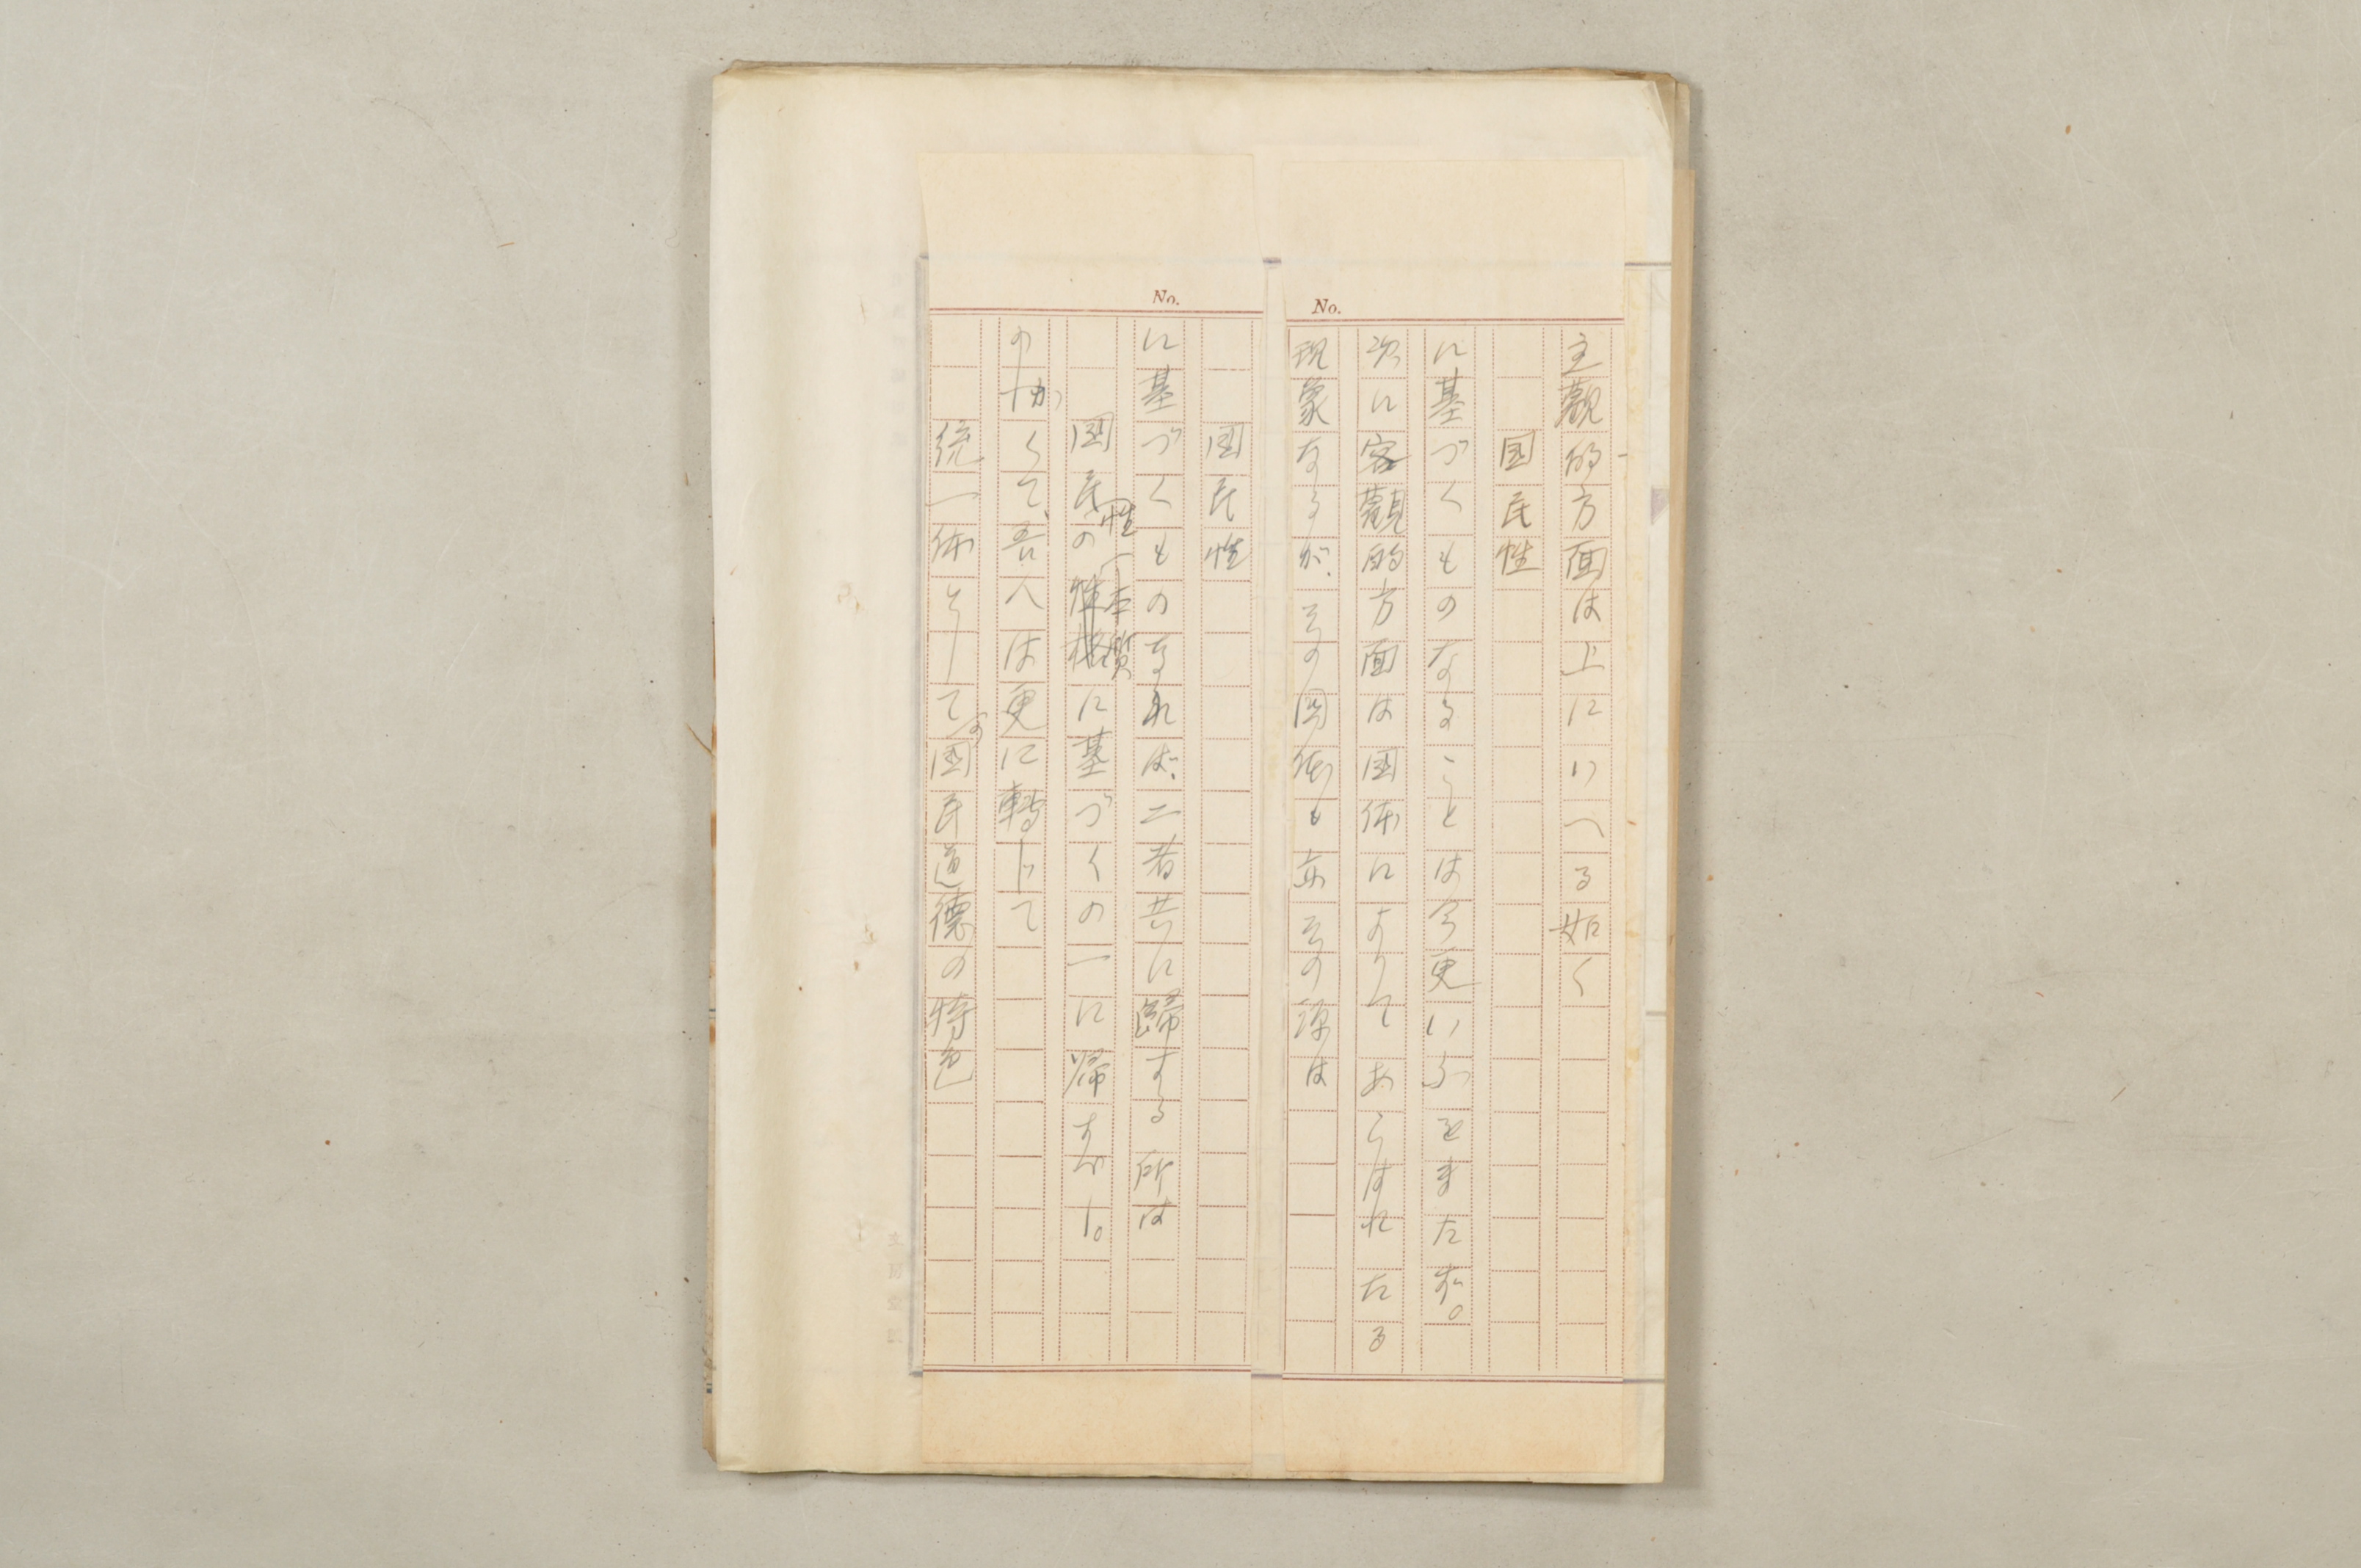 No.
主觀的方面は上にいへる如く
国民性
に基づくものなることは今更いふをまたず。
次に客觀的方面は国体によりてあらはれたる
現象なるが、その国体も亦その源は
No.
国民性
に基づくものなれば、二者共に歸する所は
国民性の本質に基づくの一に帰すべし。
かくて、吾人は更に轉じて
統一体としての国民道德の特色